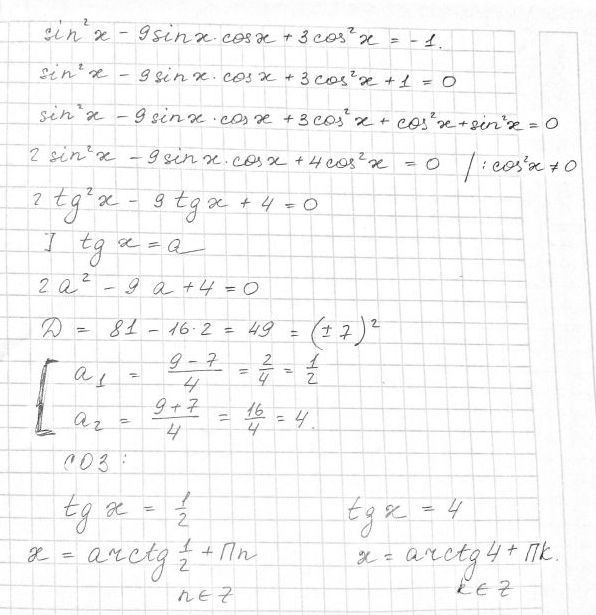 sin²x - 9sinx·cosx + 3cos²x = -1.
sin²x - 9sinx·cosx + 3cos²x + 1 = 0
sin²x - 9sinx·cosx + 3cos²x + cos²x + sin²x = 0
2 sin²x - 9sinx·cosx + 4cos²x = 0 / : cos²x ≠ 0
2 tg²x - 9 tgx + 4 = 0
] tg x = a
2a² - 9a + 4 = 0
D = 81 - 16·2 = 49 = (±7)²
[ a₁ = (9-7)/4 = 2/4 = 1/2
a₂ = (9+7)/4 = 16/4 = 4.
СОЗ:
tg x = 1/2 tg x = 4
x = arctg 1/2 + Πn x = arctg 4 + Πk.
n ∈ Z k ∈ Z